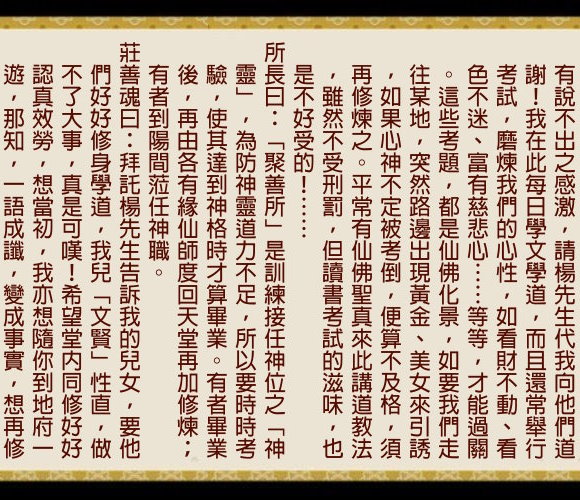 有說不出之感激，請楊先生代我向他們道
謝！我在此每日學文學道，而且還常舉行
考試，磨煉我們的心性，如看財不動、看
色不迷、富有慈悲心……等等，才能過關
。這些考題，都是仙佛化景，如要我們走
往某地，突然路邊出現黃金、美女來引誘
，如果心神不定被考倒，便算不及格，須
再修煉之。平常有仙佛聖真來此講道教法
，雖然不受刑罰，但讀書考試的滋味，也
是不好受的！……
所長曰：「聚善所」是訓練接任神位之「神
靈」，為防神靈道力不足，所以要時時考
驗，使其達到神格時才算畢業。有者畢業
後，再由各有緣仙師度回天堂再加修煉；
有者到陽間蒞任神職。
莊善魂曰：拜託楊先生告訴我的兒女，要他
們好好修身學道，我兒「文賢」性直，做
不了大事，真是可嘆！希望堂内同修好好
認真效勞，想當初，我亦想隨你到地府一
遊，那知，一語成讖，變成事實，想再修